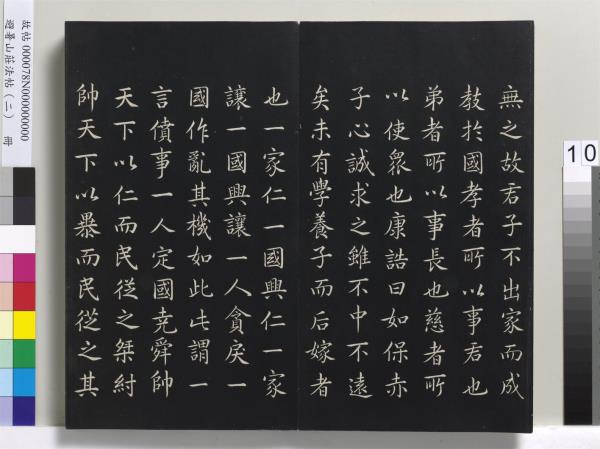 無之故君子不出家而成
教於國孝者所以事君也
弟者所以事長也慈者所
以使眾也康誥曰如保赤
子心誠求之雖不中不遠
矣未有學養子而后嫁者
也一家仁一國興仁一家
讓一國興讓一人貪戾一
國作亂其機如此此謂一
言僨事一人定國堯舜帥
天下以仁而民從之桀紂
帥天下以暴而民從之其
故帖 000078N000000000
避暑山莊法帖（二） 冊
10